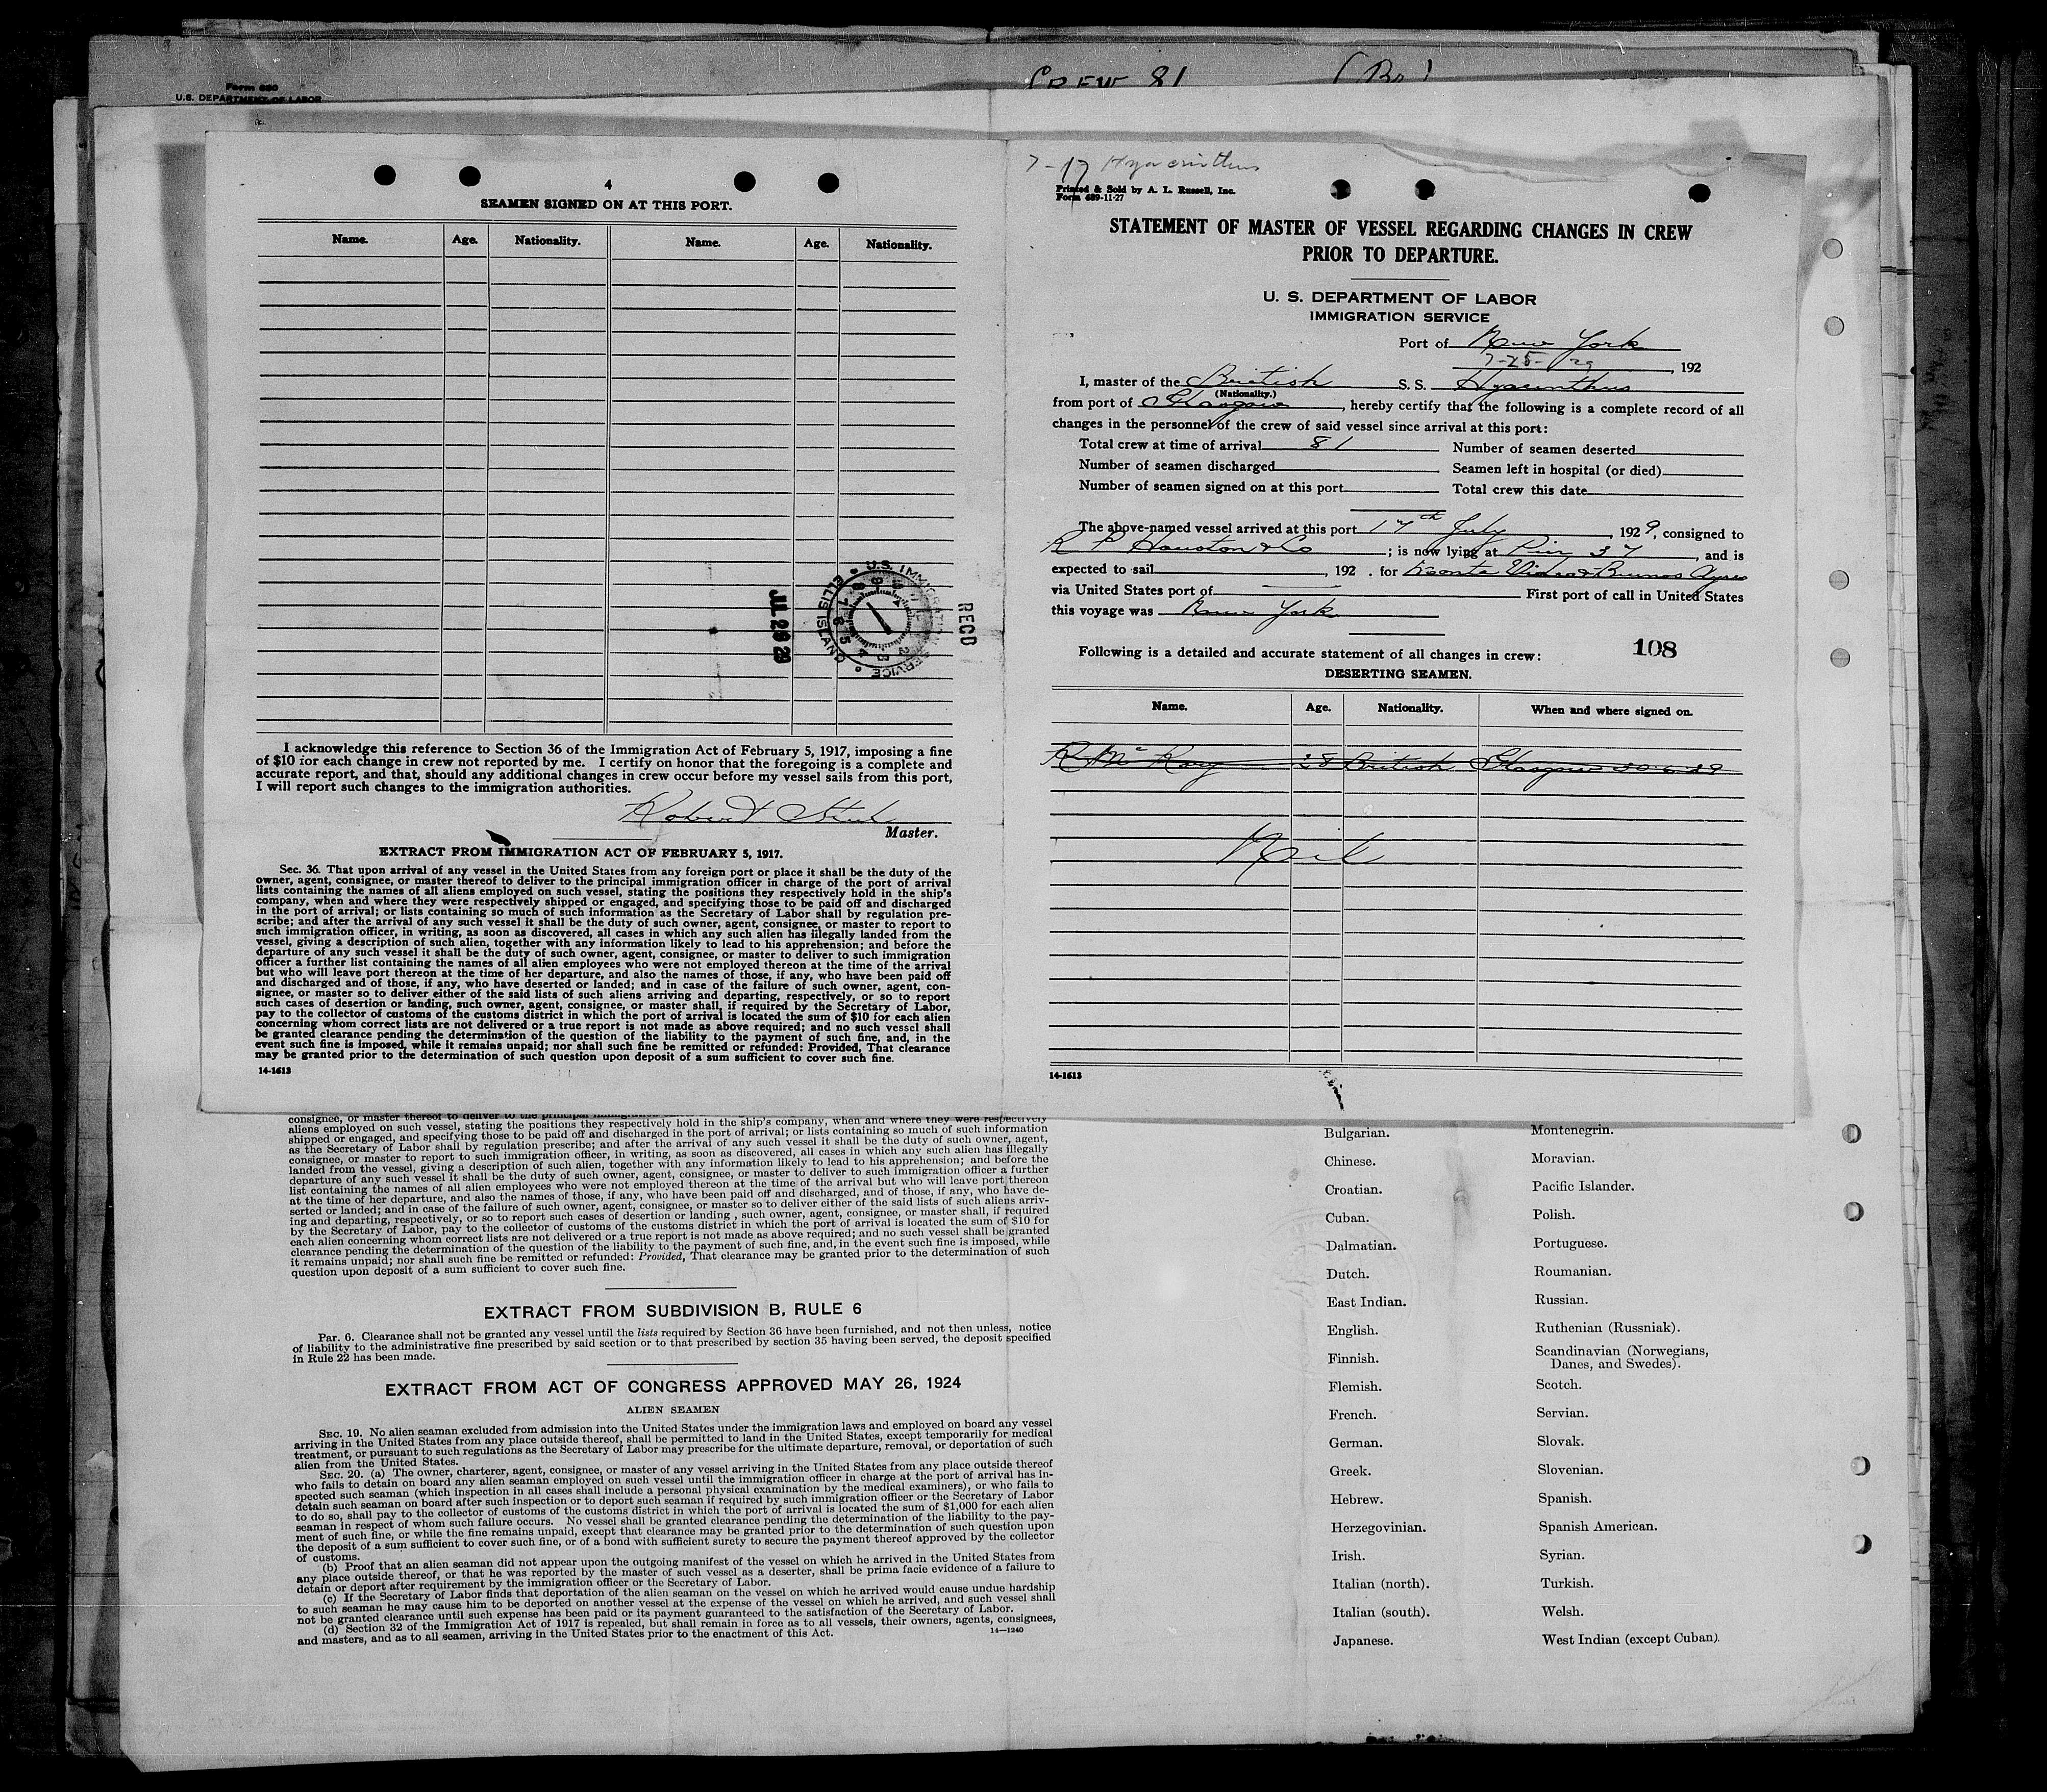 CREW 81
Form 680
U.S. DEPARTMENT OF LABOR
4
SEAMEN SIGNED ON AT THIS PORT.
Name. Age. Nationality. Name. Age. Nationality.
U.S. IMMIGRATION SERVICE
ELLIS ISLAND
RECD
JUL 29 29
I acknowledge this reference to Section 36 of the Immigration Act of February 5, 1917, imposing a fine
of $10 for each change in crew not reported by me. I certify on honor that the foregoing is a complete and
accurate report, and that, should any additional changes in crew occur before my vessel sails from this port,
I will report such changes to the immigration authorities.
Robert
Master.
EXTRACT FROM IMMIGRATION ACT OF FEBRUARY 5, 1917.
Sec. 36. That upon arrival of any vessel in the United States from any foreign port or place it shall be the duty of the
owner, agent, consignee, or master thereof to deliver to the principal immigration officer in charge of the port of arrival
lists containing the names of all aliens employed on such vessel, stating the positions they respectively hold in the ship's
company, when and where they were respectively shipped or engaged, and specifying those to be paid off and discharged
in the port of arrival; or lists containing so much of such information as the Secretary of Labor shall by regulation pre-
scribe; and after the arrival of any such vessel it shall be the duty of such owner, agent, consignee, or master to report to
such immigration officer, in writing, as soon as discovered, all cases in which any such alien has illegally landed from the
vessel, giving a description of such alien, together with any information likely to lead to his apprehension; and before the
departure of any such vessel it shall be the duty of such owner, agent, consignee, or master to deliver to such immigration
officer a further list containing the names of all alien employees who were not employed thereon at the time of the arrival
but who will leave port thereon at the time of her departure, and also the names of those, if any, who have been paid off
and discharged and of those, if any, who have deserted or landed; and in case of the failure of such owner, agent, con-
signee, or master so to deliver either of the said lists of such aliens arriving and departing, respectively, or so to report
such cases of desertion or landing, such owner, agent, consignee, or master shall, if required by the Secretary of Labor,
pay to the collector of customs of the customs district in which the port of arrival is located the sum of $10 for each alien
concerning whom correct lists are not delivered or a true report is not made as above required; and no such vessel shall
be granted clearance pending the determination of the question of the liability to the payment of such fine, and, in the
event such fine is imposed, while it remains unpaid; nor shall such fine be remitted or refunded: Provided, That clearance
may be granted prior to the determination of such question upon deposit of a sum sufficient to cover such fine.
14-1613
7-17 Hyacinthus
Printed & Sold by A. L. Russell, Inc.
Form 689-11-27
STATEMENT OF MASTER OF VESSEL REGARDING CHANGES IN CREW
PRIOR TO DEPARTURE.
U. S. DEPARTMENT OF LABOR
IMMIGRATION SERVICE
Port of New York
7-25-29, 192
I, master of the British S. S. Hyacinthus
(Nationality.)
from port of Glasgow, hereby certify that the following is a complete record of all
changes in the personnel of the crew of said vessel since arrival at this port:
Total crew at time of arrival 81 Number of seamen deserted
Number of seamen discharged Seamen left in hospital (or died)
Number of seamen signed on at this port Total crew this date
The above-named vessel arrived at this port 17th July, 1929, consigned to
R P Houston & Co; is now lying at Pier 37, and is
expected to sail, 192 . for Monte Video & Buenos Ayres
via United States port of First port of call in United States
this voyage was New York
Following is a detailed and accurate statement of all changes in crew: 108
DESERTING SEAMEN.
Name. Age. Nationality. When and where signed on.
R Mc 28 British Glasgow 30-6-29
Nil
14-1613
consignee, or master thereof to deliver to the principal immigration
aliens employed on such vessel, stating the positions they respectively hold in the ship's company, when and where they were respectively
shipped or engaged, and specifying those to be paid off and discharged in the port of arrival; or lists containing so much of such information
as the Secretary of Labor shall by regulation prescribe; and after the arrival of any such vessel it shall be the duty of such owner, agent,
consignee, or master to report to such immigration officer, in writing, as soon as discovered, all cases in which any such alien has illegally
landed from the vessel, giving a description of such alien, together with any information likely to lead to his apprehension; and before the
departure of any such vessel it shall be the duty of such owner, agent, consignee, or master to deliver to such immigration officer a further
list containing the names of all alien employees who were not employed thereon at the time of the arrival but who will leave port thereon
at the time of her departure, and also the names of those, if any, who have been paid off and discharged, and of those, if any, who have de-
serted or landed; and in case of the failure of such owner, agent, consignee, or master so to deliver either of the said lists of such aliens arriv-
ing and departing, respectively, or so to report such cases of desertion or landing , such owner, agent, consignee, or master shall, if required
by the Secretary of Labor, pay to the collector of customs of the customs district in which the port of arrival is located the sum of $10 for
each alien concerning whom correct lists are not delivered or a true report is not made as above required; and no such vessel shall be granted
clearance pending the determination of the question of the liability to the payment of such fine, and, in the event such fine is imposed, while
it remains unpaid; nor shall such fine be remitted or refunded: Provided, That clearance may be granted prior to the determination of such
question upon deposit of a sum sufficient to cover such fine.
EXTRACT FROM SUBDIVISION B, RULE 6
Par. 6. Clearance shall not be granted any vessel until the lists required by Section 36 have been furnished, and not then unless, notice
of liability to the administrative fine prescribed by said section or to that prescribed by section 35 having been served, the deposit specified
in Rule 22 has been made.
EXTRACT FROM ACT OF CONGRESS APPROVED MAY 26, 1924
ALIEN SEAMEN
Sec. 19. No alien seaman excluded from admission into the United States under the immigration laws and employed on board any vessel
arriving in the United States from any place outside thereof, shall be permitted to land in the United States, except temporarily for medical
treatment, or pursuant to such regulations as the Secretary of Labor may prescribe for the ultimate departure, removal, or deportation of such
alien from the United States.
Sec. 20. (a) The owner, charterer, agent, consignee, or master of any vessel arriving in the United States from any place outside thereof
who fails to detain on board any alien seaman employed on such vessel until the immigration officer in charge at the port of arrival has in-
spected such seaman (which inspection in all cases shall include a personal physical examination by the medical examiners), or who fails to
detain such seaman on board after such inspection or to deport such seaman if required by such immigration officer or the Secretary of Labor
to do so, shall pay to the collector of customs of the customs district in which the port of arrival is located the sum of $1,000 for each alien
seaman in respect of whom such failure occurs. No vessel shall be granted clearance pending the determination of the liability to the pay-
ment of such fine, or while the fine remains unpaid, except that clearance may be granted prior to the determination of such question upon
the deposit of a sum sufficient to cover such fine, or of a bond with sufficient surety to secure the payment thereof approved by the collector
of customs.
(b) Proof that an alien seaman did not appear upon the outgoing manifest of the vessel on which he arrived in the United States from
any place outside thereof, or that he was reported by the master of such vessel as a deserter, shall be prima facie evidence of a failure to
detain or deport after requirement by the immigration officer or the Secretary of Labor.
(c) If the Secretary of Labor finds that deportation of the alien seaman on the vessel on which he arrived would cause undue hardship
to such seaman he may cause him to be deported on another vessel at the expense of the vessel on which he arrived, and such vessel shall
not be granted clearance until such expense has been paid or its payment guaranteed to the satisfaction of the Secretary of Labor.
(d) Section 32 of the Immigration Act of 1917 is repealed, but shall remain in force as to all vessels, their owners, agents, consignees,
and masters, and as to all seamen, arriving in the United States prior to the enactment of this Act.
14—1240
Bulgarian. Montenegrin.
Chinese. Moravian.
Croatian. Pacific Islander.
Cuban. Polish.
Dalmatian. Portuguese.
Dutch. Roumanian.
East Indian. Russian.
English. Ruthenian (Russniak).
Finnish. Scandinavian (Norwegians,
Danes, and Swedes).
Flemish. Scotch.
French. Servian.
German. Slovak.
Greek. Slovenian.
Hebrew. Spanish.
Herzegovinian. Spanish American.
Irish. Syrian.
Italian (north). Turkish.
Italian (south). Welsh.
Japanese. West Indian (except Cuban).